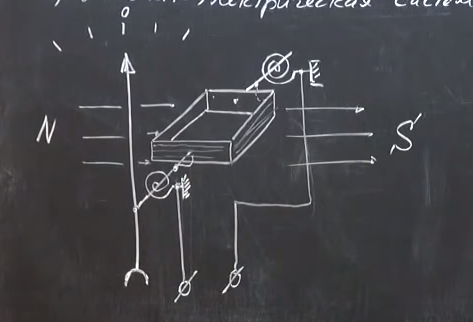 электрическая систем
0
N S